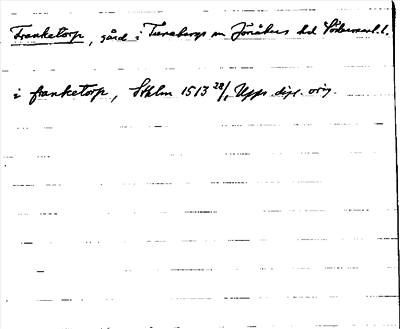 Franketorp, gård i Tunabergs sn Jönåkers hd Södermanl. l.
i franketorp, Sthlm 1513 28/1 Upps. dipl. orig.